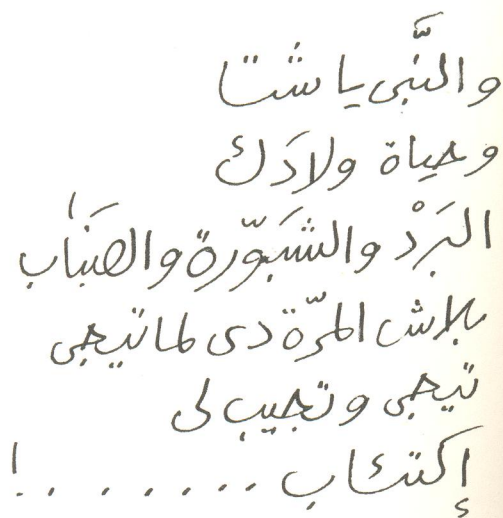 والنَّبى يا شتا
وحياة ولادَك
البَردْ والشَبّورة والضَباب
بلاش المرّة دى لما تيجى
تيجى وتجيب لى
إكتئاب . . . . . . . !